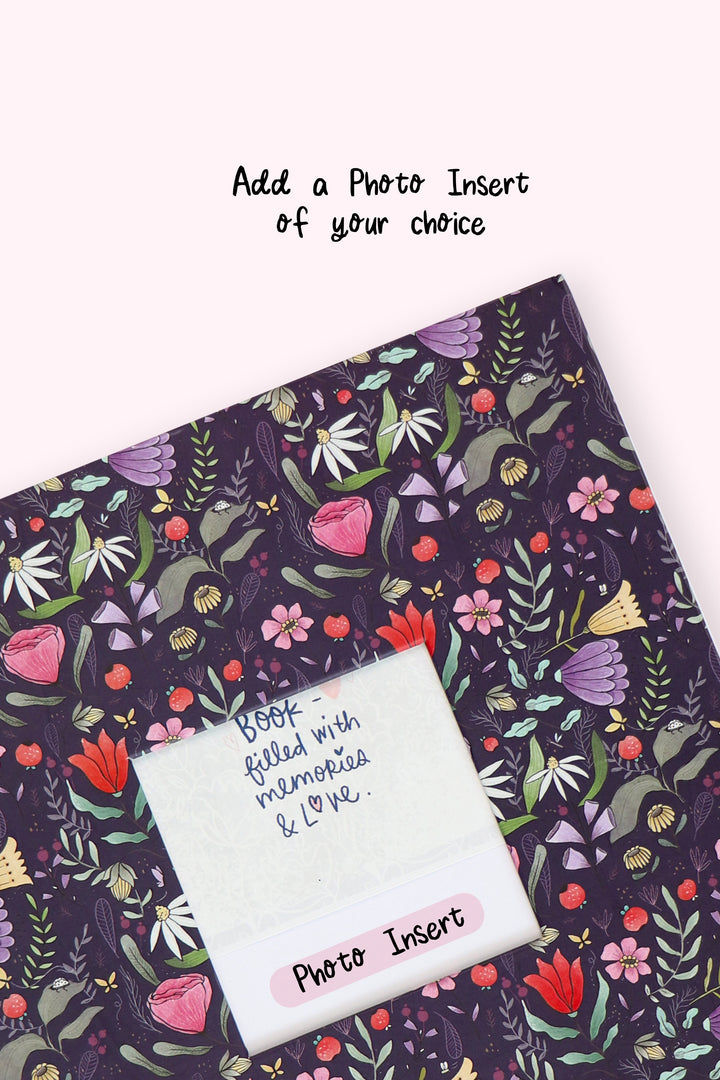 Add a Photo Insert
of your choice
BOOK -
filled with
memories
& Love.
Photo Insert